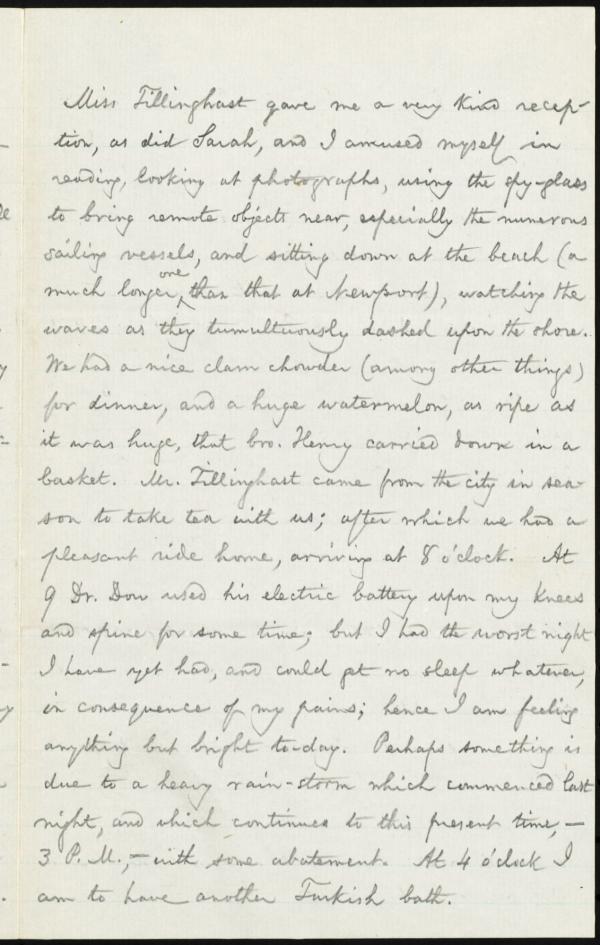 Miss Tillinghast gave me a very kind recep-
tion, as did Sarah, and I amused myself in
reading, looking at photographs, using the spy-glass
to bring remote objects near, especially the numerous
sailing vessels, and sitting down at the beach (a
much longer one than that at Newport), watching the
waves as they tumultuously dashed upon the shore.
We had a nice clam chowder (among other things)
for dinner, and a huge watermelon, as ripe as
it was huge, that bro. Henry carried down in a
basket. Mr. Tillinghast came from the city in sea-
son to take tea with us; after which we had a
pleasant ride home, arriving at 8 o'clock. At
9 Dr. Dow used his electric battery upon my knees
and spine for some time; but I had the worst night
I have yet had, and could get no sleep whatever,
in consequence of my pains; hence I am feeling
anything but bright to-day. Perhaps something is
due to a heavy rain-storm which commenced last
night, and which continues to this present time,—
3 P. M.,— with some abatement. At 4 o'clock I
am to have another Turkish bath.